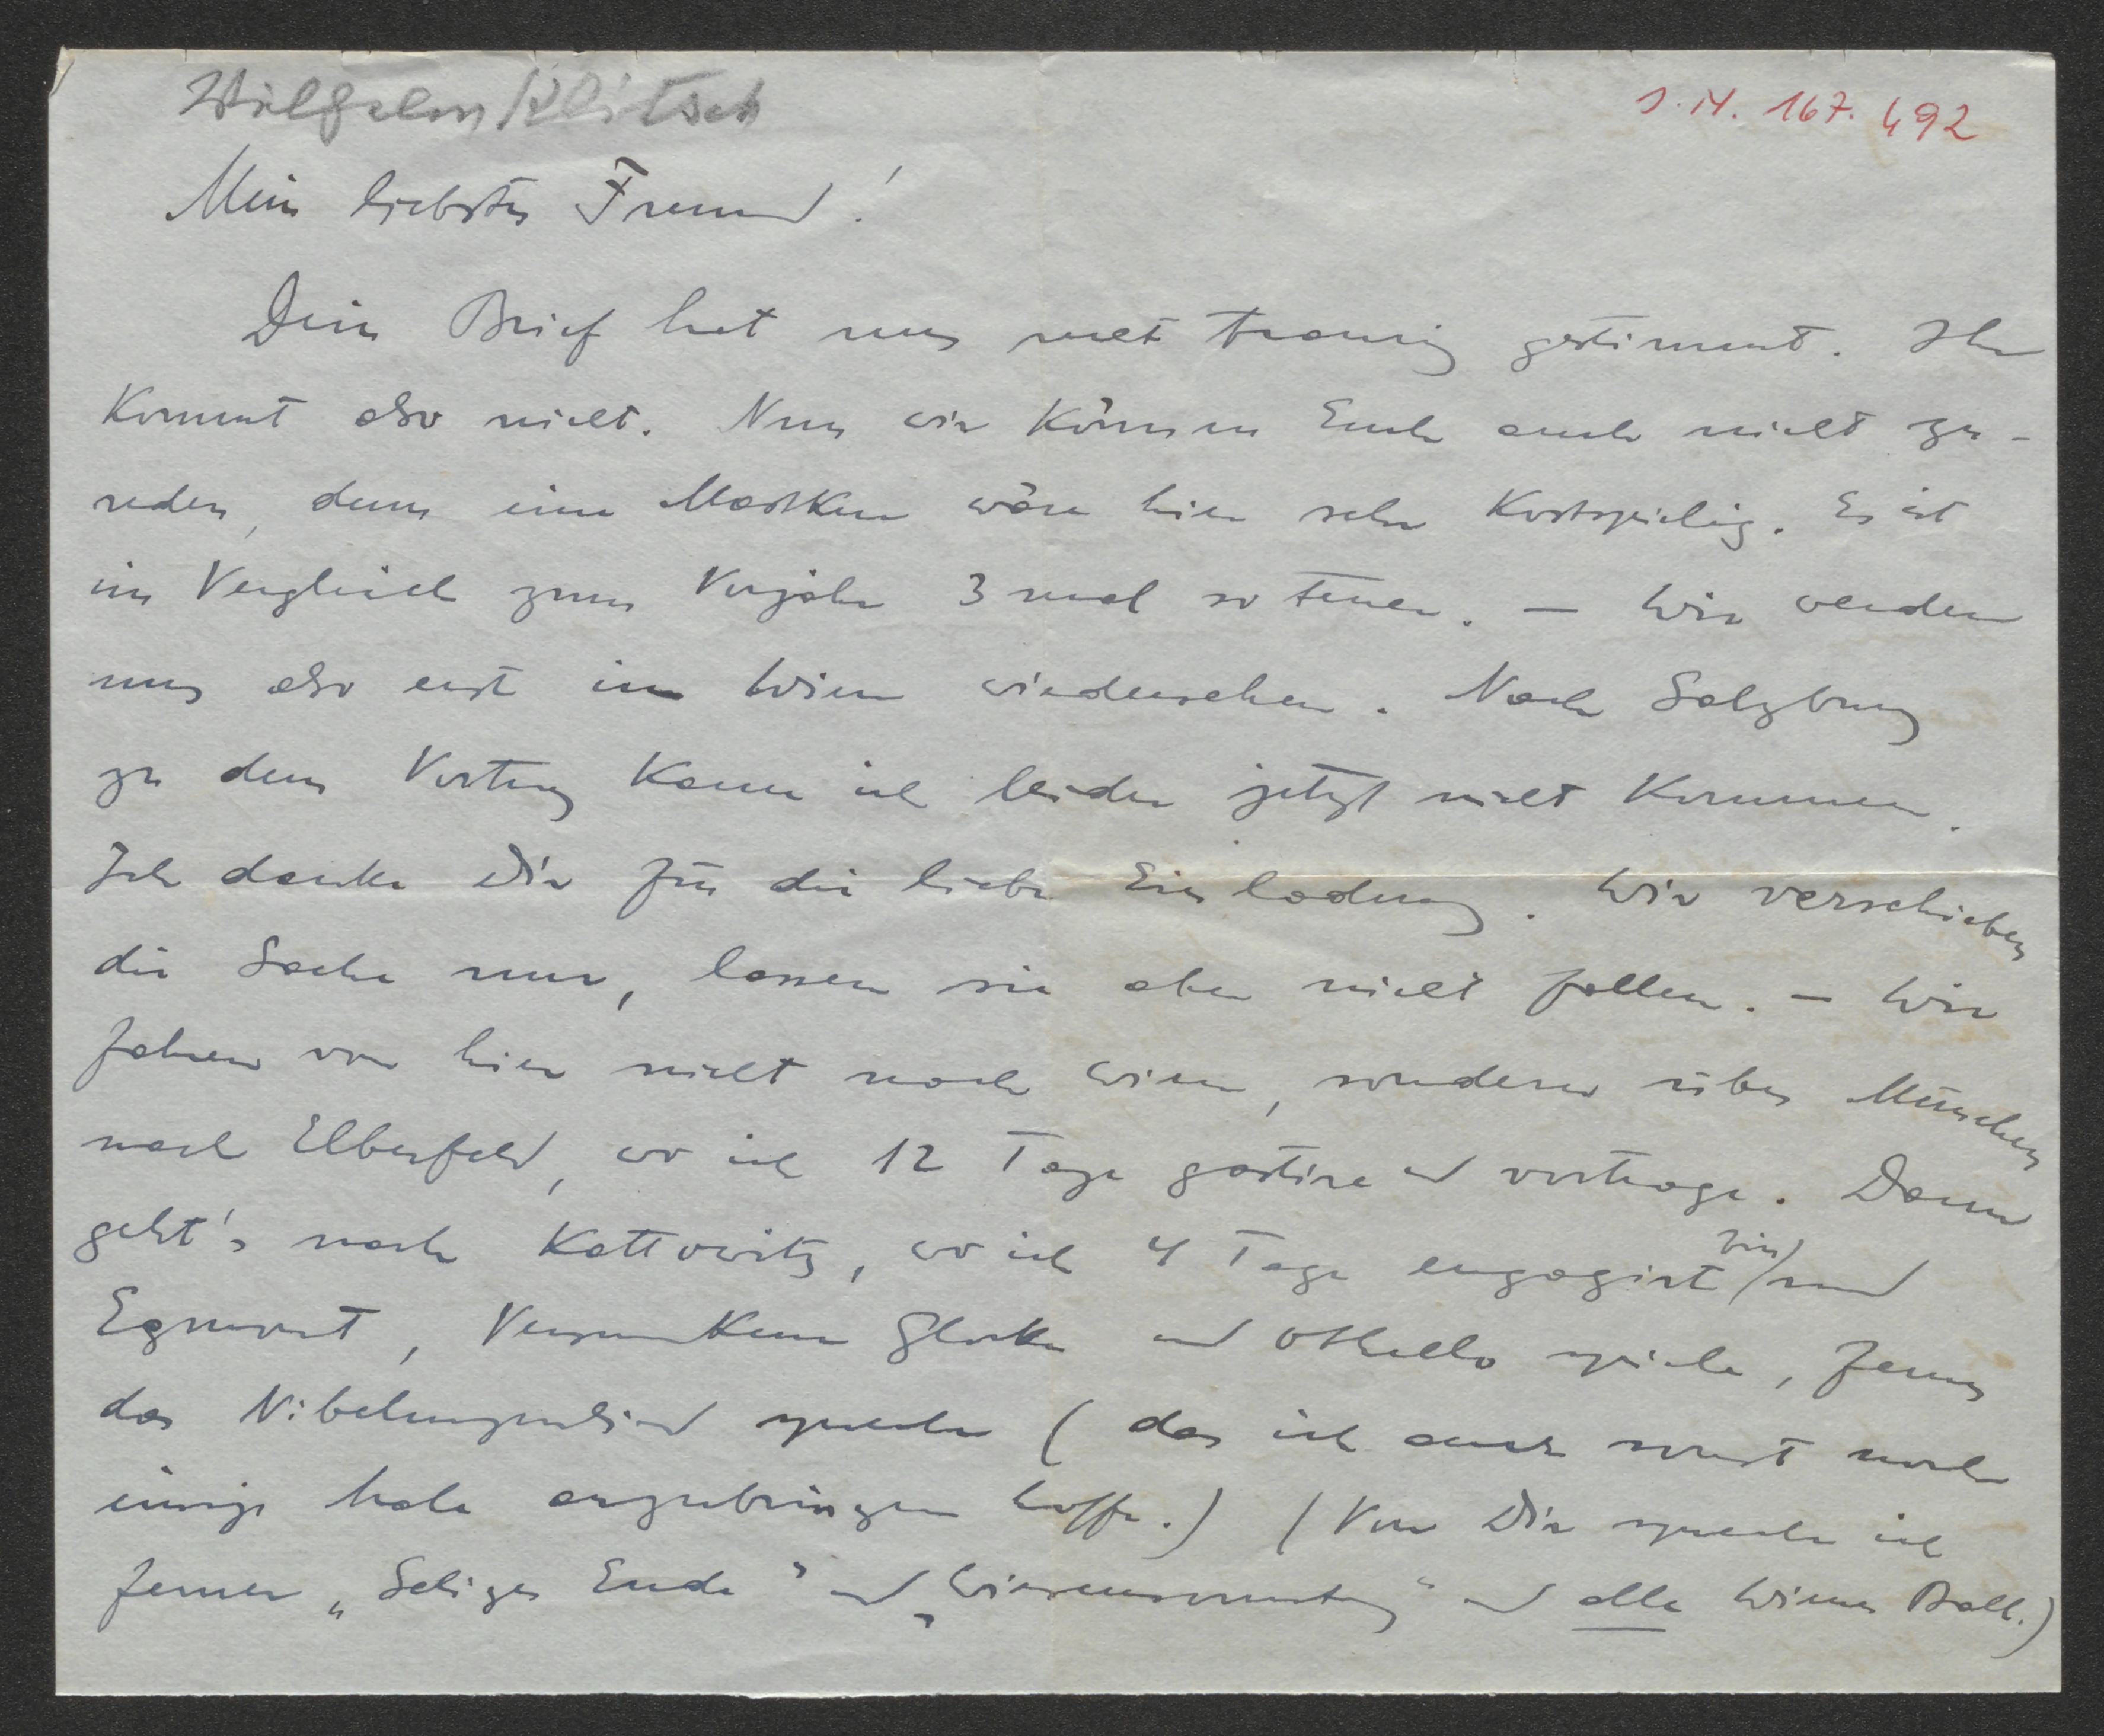 Wilhelm Klitsch
J. N. 167.492
Mein liebster Freund!
Dein Brief hat uns recht traurig gestimmt. Ihr
kommt also nicht. Nun wir können Euch auch nicht zu-
reden, denn eine Mastkur wäre hier sehr kostspielig. Es ist
im Vergleich zum Vorjahr 3 mal so teuer. – Wir werden
uns also erst in Wien wiedersehen. Nach Salzburg
zu dem Vortrag kann ich leider jetzt nicht kommen.
Ich danke Dir für die liebe Einladung. Wir verschieben
die Sache nur, lassen sie aber nicht fallen. – Wir
fahren von hier nicht nach Wien, sondern über München
nach Elberfeld, wo ich 12 Tage gastire und vortrage. Dann
geht's nach Kattowitz, wo ich 4 Tage engagirt bin und
Egmont, Versunkene Glocke und Othello spiele, ferner
das Nibelungenlied spreche (das ich auch sonst noch
einige Male anzubringen hoffe.) (Von Dir spreche ich
ferner „Seliges Ende" und „Wiesensonntag" und alle Wiener Ball.)